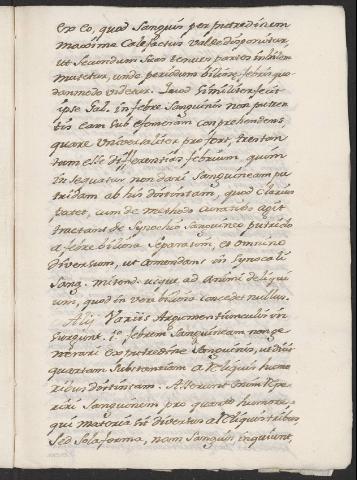 ex eo, quod Sanguis per putredinem
maxime Calefactus valde disponitur,
ut Secundum Suas tenues partes in bilem
mutetur, unde periodum biliosæ febris quo
dammodo videtur. Quod Similiter fecit
ipse Gal. in febre Sanguinis non putren
tis eam sub efemeram comprehendens,
quare Universaliter profert, tres tan
tum esse differentias febrium, quin
insequatur non dari Sanguineam pu
tridam ab his distinctam, quod Clarius
patet, cum de methodo curatibus agit
tractans de Synocho Sanguineo putrido
a febre biliosa Separatim, et omnino
diversum, ut Amandans in Synocho li
Sang. mitend. usque ad Animi deliqui
um, quod in vere bilioso concedet nullus.
Alij Variis Argumentinculis in
surgunt. 1.º febrem Sanguineam non ge
nerari ex putredine Sanguinis, ut dis
quartam Substantiam a Reliquis humo
ribus distinctam. Asserunt enim Repe
riri Sanguinem pro quarto humore
qui materia sit diversus a Reliquis tribus,
Sed Sola forma, nam Sanguis inquiunt,